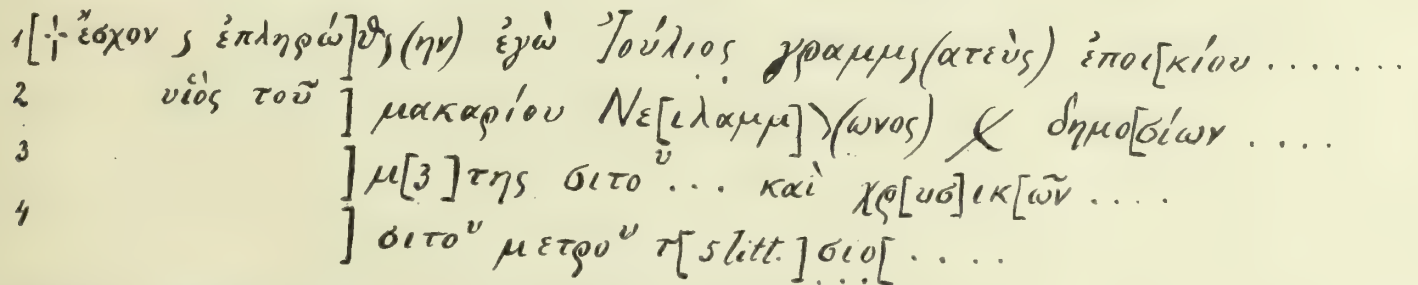 1[⸓ ἔσχον ϛ ἐπληρώ]θϛ(ην) ἐγὼ Ἰούλιος γραμμϛ(ατεὺς) ἐποι[κίου .......
2 υἱὸς τοῦ ] μακαρίου Νε[ιλαμμ]\(ωνος) δημο[σίων ....
3 ]μ[3]της σιτοᵘ... καὶ χρ[υσ]ικ[ῶν ....
4 ] σιτοᵘ μετροᵘ τ[5 litt.]σιο[ ....